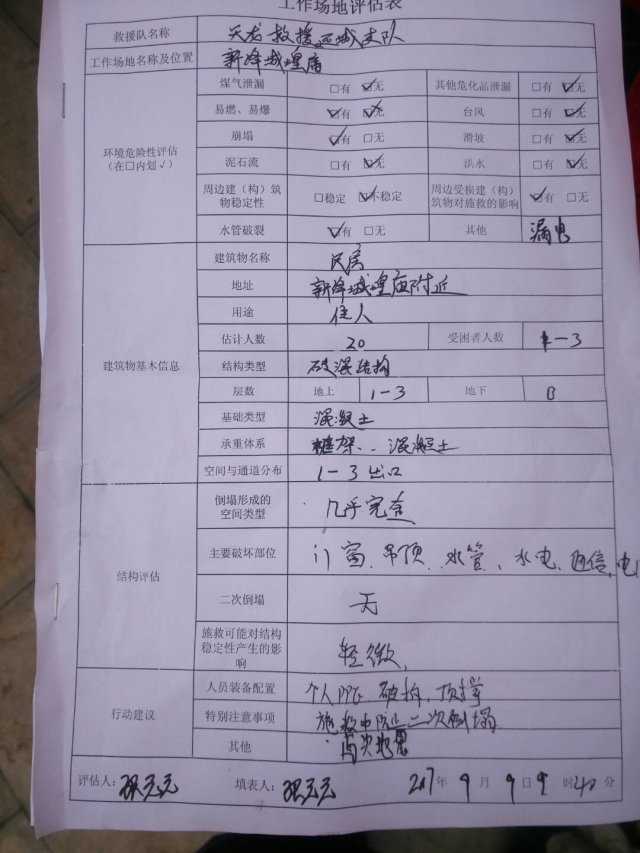 工作场地评估表
救援队名称 天龙救援运城支队
工作场地名称及位置 新绛城隍庙
环境危险性评估
(在□内划√)
煤气泄漏 □有 ☑无 其他危化品泄漏 □有 ☑无
易燃、易爆 ☑有 ☑无 台风 □有 ☑无
崩塌 ☑有 □无 滑坡 □有 ☑无
泥石流 □有 ☑无 洪水 □有 ☑无
周边建(构)筑
物稳定性 □稳定 ☑不稳定 周边受损建(构)
筑物对施救的影响 ☑有 □无
水管破裂 ☑有 □无 其他 漏电
建筑物基本信息
建筑物名称 民房
地址 新绛城隍庙附近
用途 住人
估计人数 20 受困者人数 1-3
结构类型 砖混结构
层数 地上 1-3 地下 0
基础类型 混凝土
承重体系 框架.. 混凝土
空间与通道分布 1-3出口
结构评估
倒塌形成的
空间类型 几乎完全
主要破坏部位 门窗、吊顶、水管、水电、通信、电
二次倒塌 无
施救可能对结构
稳定性产生的影
响 轻微.
行动建议
人员装备配置 个人PPE 破拆、顶撑
特别注意事项 施救中防止二次倒塌
其他
评估人: 填表人: 2017年9月9日9时40分